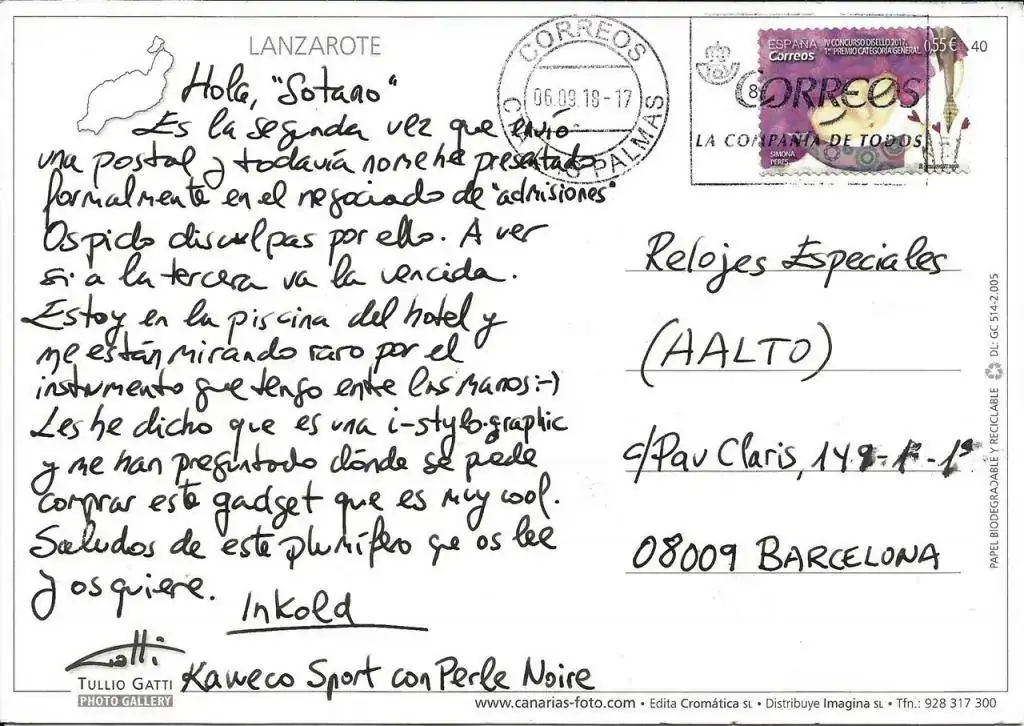 LANZAROTE
Hola, "Sotano"
Es la segunda vez que envío
una postal y todavía no me he presentado
formalmente en el negociado de "admisiones"
Os pido disculpas por ello. A ver
si a la tercera va la vencida.
Estoy en la piscina del hotel y
me están mirando raro por el
instrumento que tengo entre las manos :-)
Les he dicho que es una i-stylo.graphic
y me han preguntado dónde se puede
comprar este gadget que es muy cool.
Saludos de este plumífero que os lee
y os quiere.
Inkold
Kaweco Sport con Perle Noire
Gatti
TULLIO GATTI
PHOTO GALLERY
CORREOS
06.09.18-17
LAS PALMAS
ESPAÑA
Correos
IV CONCURSO DISELLO 2017.
1er PREMIO CATEGORÍA GENERAL
0,55 €
40
8
CORREOS
LA COMPAÑIA DE TODOS
SIMONA
PERES
Relojes Especiales
(AALTO)
c/Pau Claris,
08009 BARCELONA
PAPEL BIODEGRADABLE Y RECICLABLE DL: GC 514-2.005
www.canarias-foto.com • Edita Cromática SL • Distribuye Imagina SL • Tfn.: 928 317 300